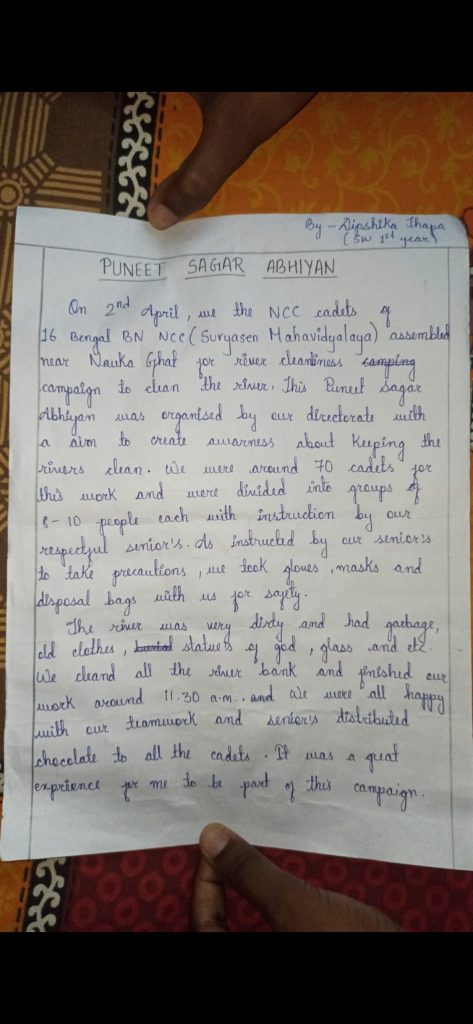 By - Dipshika Thapa
(SW 1st year)
PUNEET SAGAR ABHIYAN
On 2nd April, we the NCC cadets of
16 Bengal BN NCC (Suryasen Mahavidyalaya) assembled
near Nauka Ghat for river cleanliness camping
campaign to clean the river. This Puneet Sagar
Abhiyan was organised by our directorate with
a aim to create awarness about Keeping the
rivers clean. We were around 70 cadets for
this work and were divided into groups of
8-10 people each with instruction by our
respectful senior's. As instructed by our senior's
to take precautions, we took gloves, masks and
disposal bags with us for safety.
The river was very dirty and had garbage,
old clothes, statues of god, glass and etc.
We cleand all the river bank and finished our
work around 11.30 a.m.. and We were all happy
with our teamwork and senior's distributed
chocolate to all the cadets. It was a great
exprience for me to be part of this campaign.